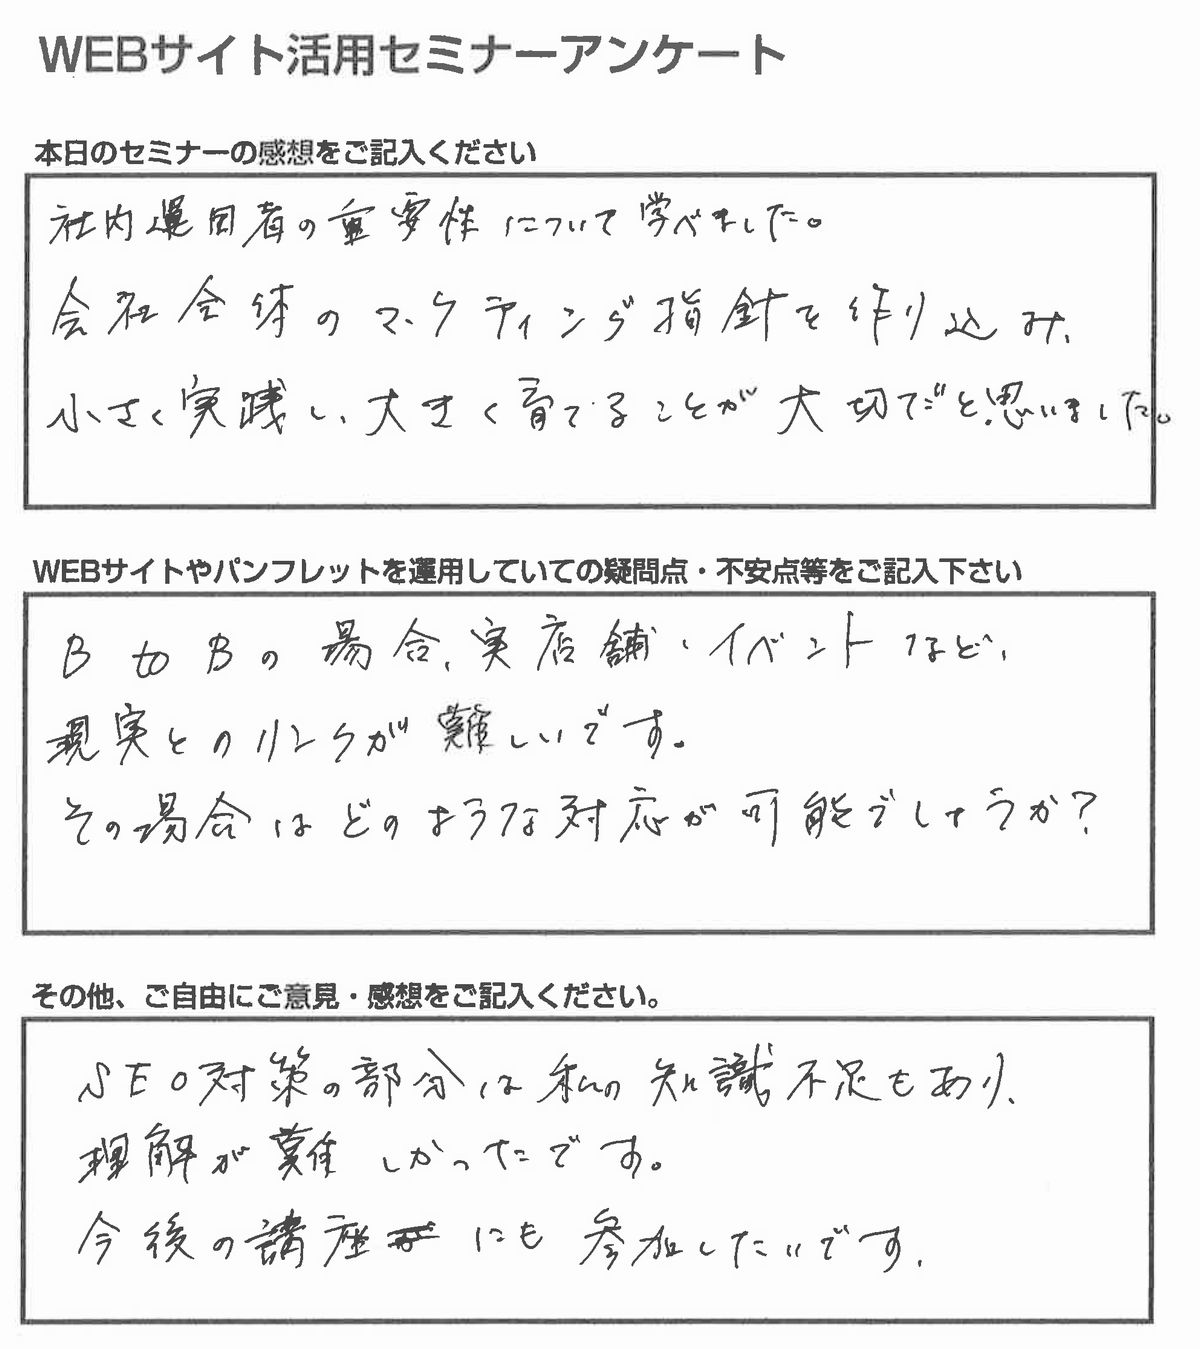 WEBサイト活用セミナーアンケート
本日のセミナーの感想をご記入ください
社内運用者の重要性について学べました。
会社全体のマーケティング指針を作り込み、
小さく実践し、大きく育てることが大切だと思いました。
WEBサイトやパンフレットを運用していての疑問点・不安点等をご記入下さい
BtoBの場合、実店舗・イベントなど、
現実とのリンクが難しいです。
その場合はどのような対応が可能でしょうか?
その他、ご自由にご意見・感想をご記入ください。
SEO対策の部分は私の知識不足もあり、
理解が難しかったです。
今後の講座にも参加したいです。